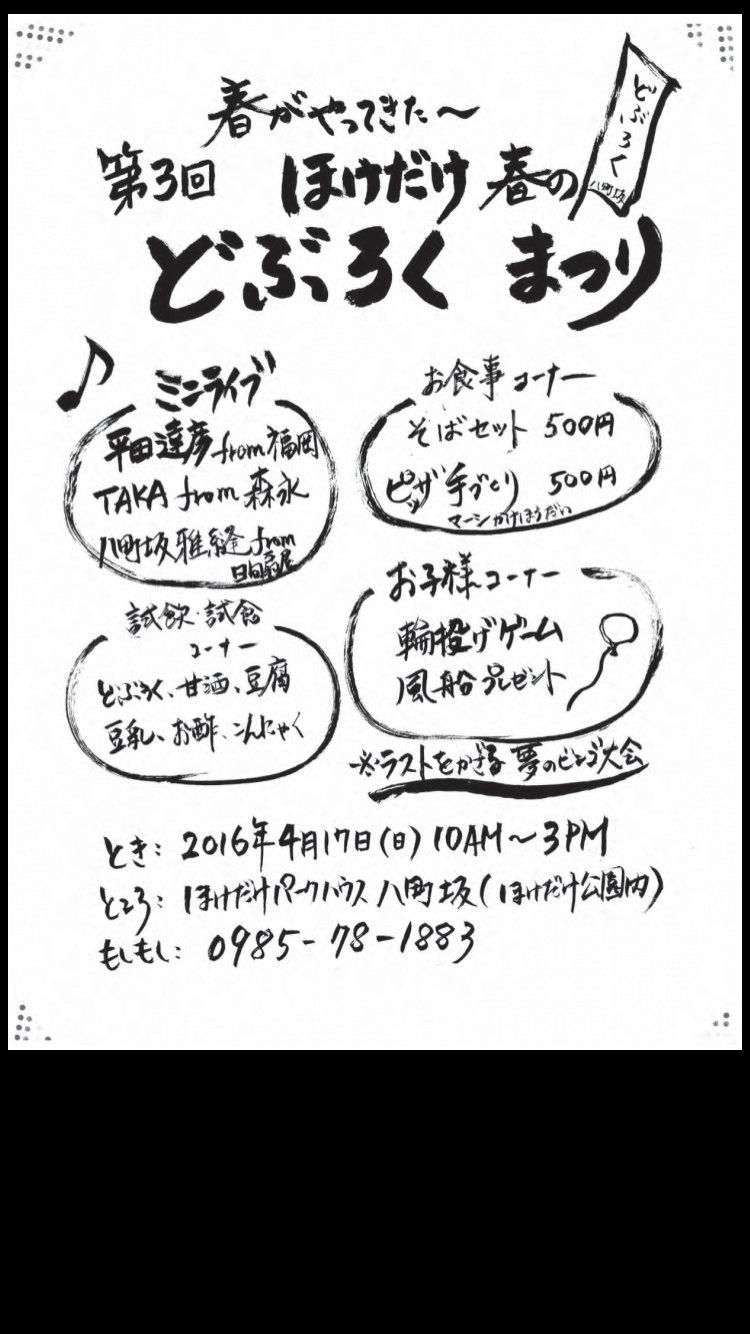 春がやってきた〜
どぶろく
八町坂
第3回 ほけだけ 春の
どぶろく まつり
ミニライブ
平田達彦 from 福岡
TAKA from 森永
八町坂雅縫 from
日向扇屋
お食事コーナー
そばセット 500円
ピッザ手づくり 500円
マーシかけほうだい
試飲・試食
コーナー
どぶろく、甘酒、豆腐
豆乳、お酢、こんにゃく
お子様コーナー
輪投げゲーム
風船プレゼント
※ラストをかざる 夢のビンゴ大会
とき: 2016年4月17日(日) 10AM〜3PM
ところ: ほけだけパークハウス 八町坂(ほけだけ公園内)
もしもし: 0985-78-1883